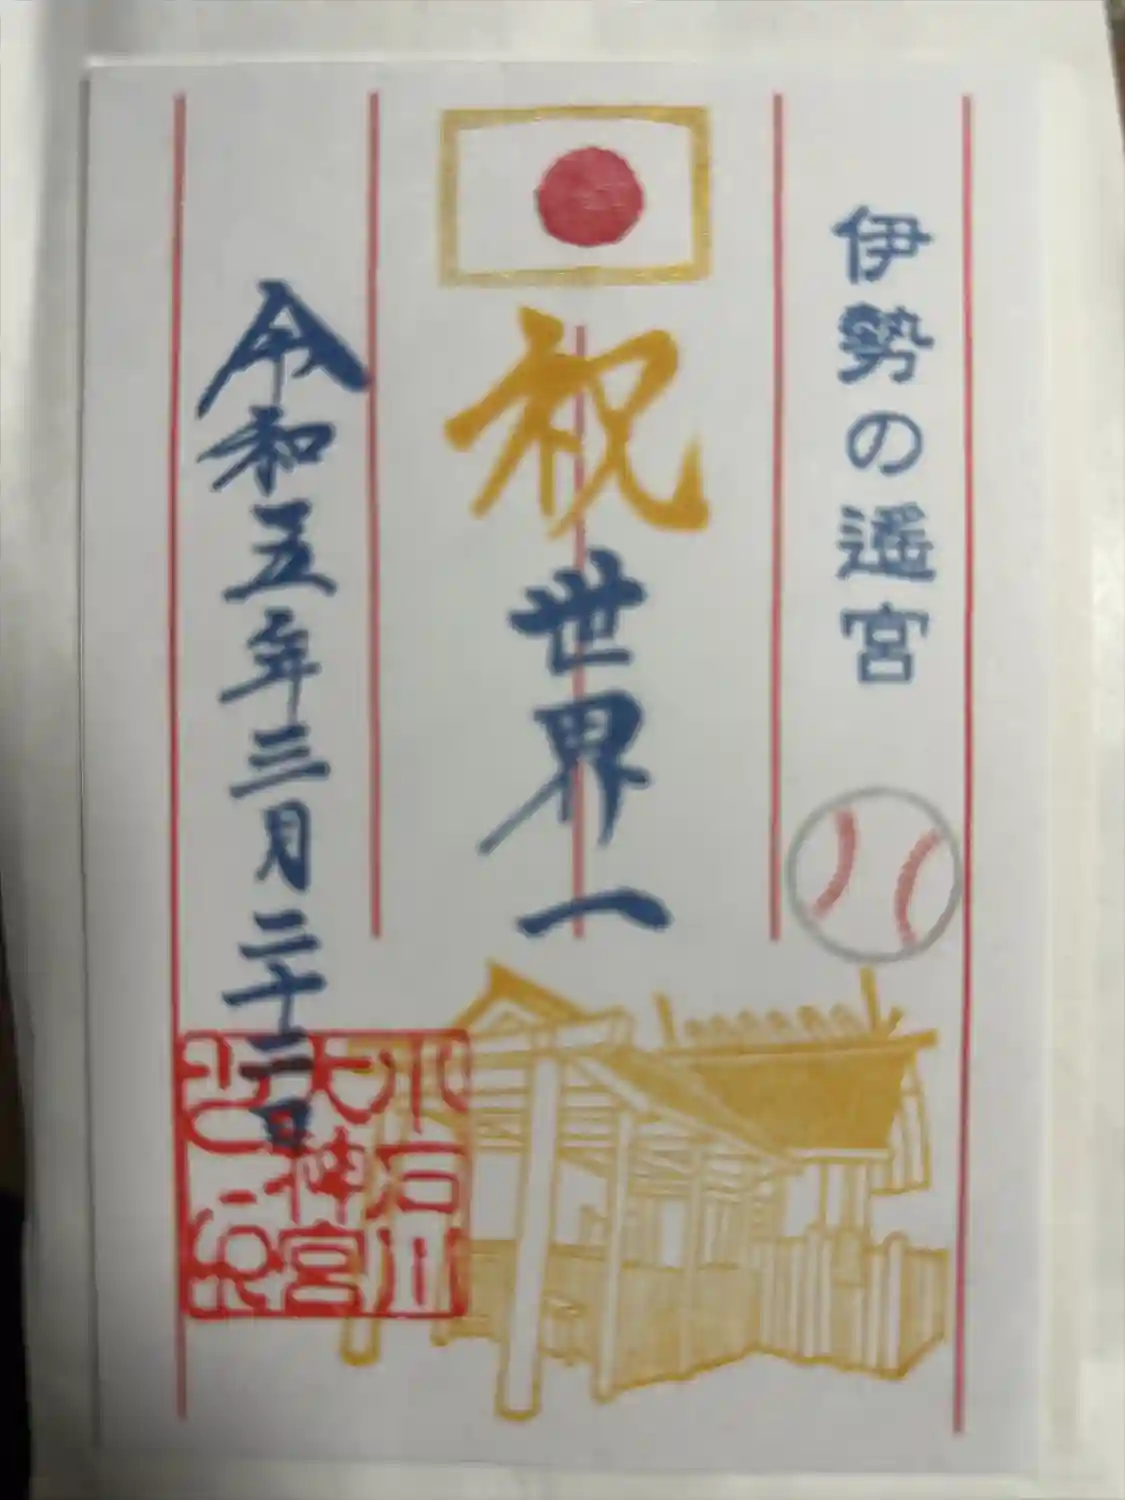 伊勢の遙宮
祝世界一
令和五年三月二十二日
小石川
大神宮
之印